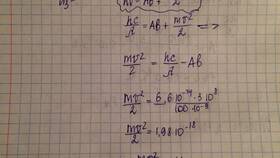 hc/λ = AB + mv²/2 =>
mv²/2 = hc/λ - AB
mv²/2 = 6,6·10⁻³⁴·3·10⁸/100·10⁻⁹
mv²/2 = 1,98·10⁻¹⁸